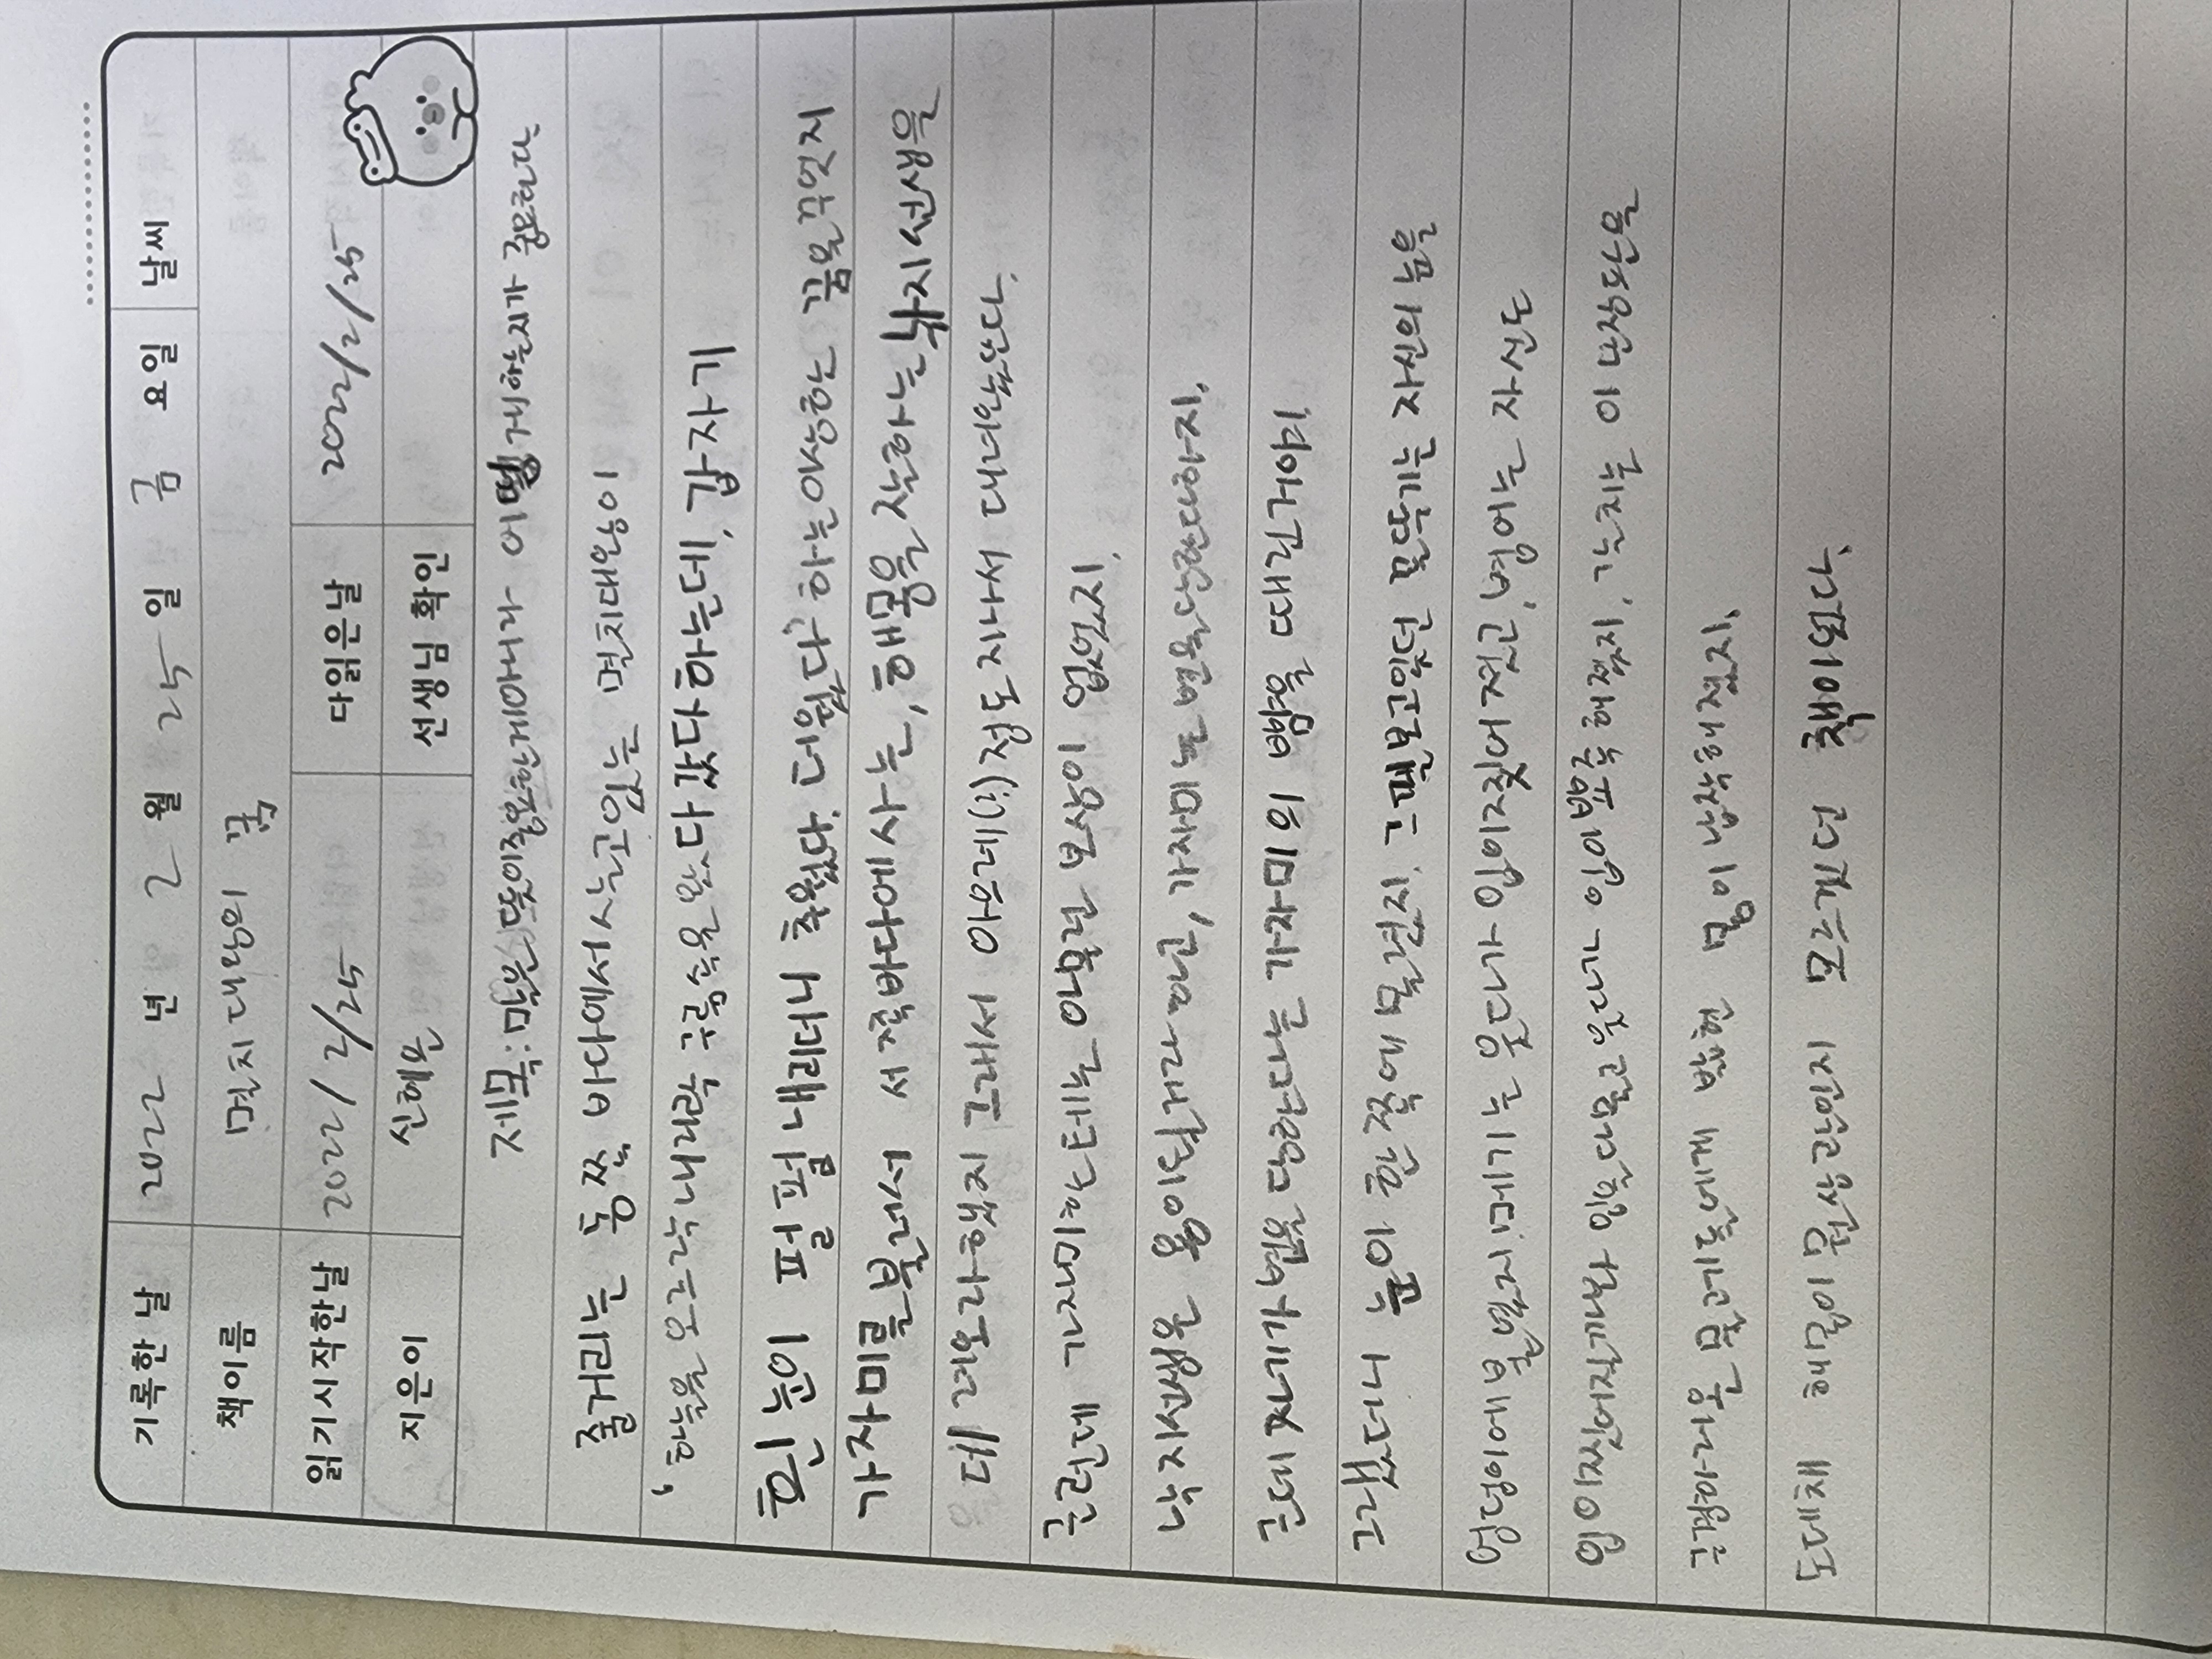 기록한 날 2022 년 2 월 25 일 금 요일 날씨
책이름 멸치대왕의 꿈
읽기시작한날 2022/2/25 다읽은날 2022/2/25
지은이 신혜은 선생님 확인
제목: 많은 뜻이중요한게아니라 어떻게하는지가 중요하다.
줄거리는 동쪽 바다에서 살고있는 멸치대왕이
'하늘을 오르락내리락 구름속을 왔다갔다하는데, 갑자기
흰눈이 펄펄 내리더니 추웠다. 더웠다' 하는이상한 꿈을꾸엇지
가자미를불러서 서쪽바다에사는, 해몽을 잘하는낙지선생을
데려오라했지 그래서 아으레(?)정도지나서 대녀왔또다.
근런데 가자미한테는 아무런 보상이 없었지.
낙지선생은 용이될거라하고, 가자미는 변을당한다하지.
근데 자기가 변을 당한다는 가자미의 뺨을 때린거야.
그랬더니 눈이 한쪽에 몰렸지. 그때보고있던 꼴뚜기는 자신의 눈을
엉덩이에붙였지. 메기는 웃다가 입이찢어졌고, 병어는 자신도
입이찢어질까봐 입을다물고웃다가 입이뾰족해졌지. 갈치는 이 난장판을
구경하러온 물고기들에게 밟혀 몸이 납작해졌지.
도데채 해몽이 뭔상관인지 모르겠던 책이었다.